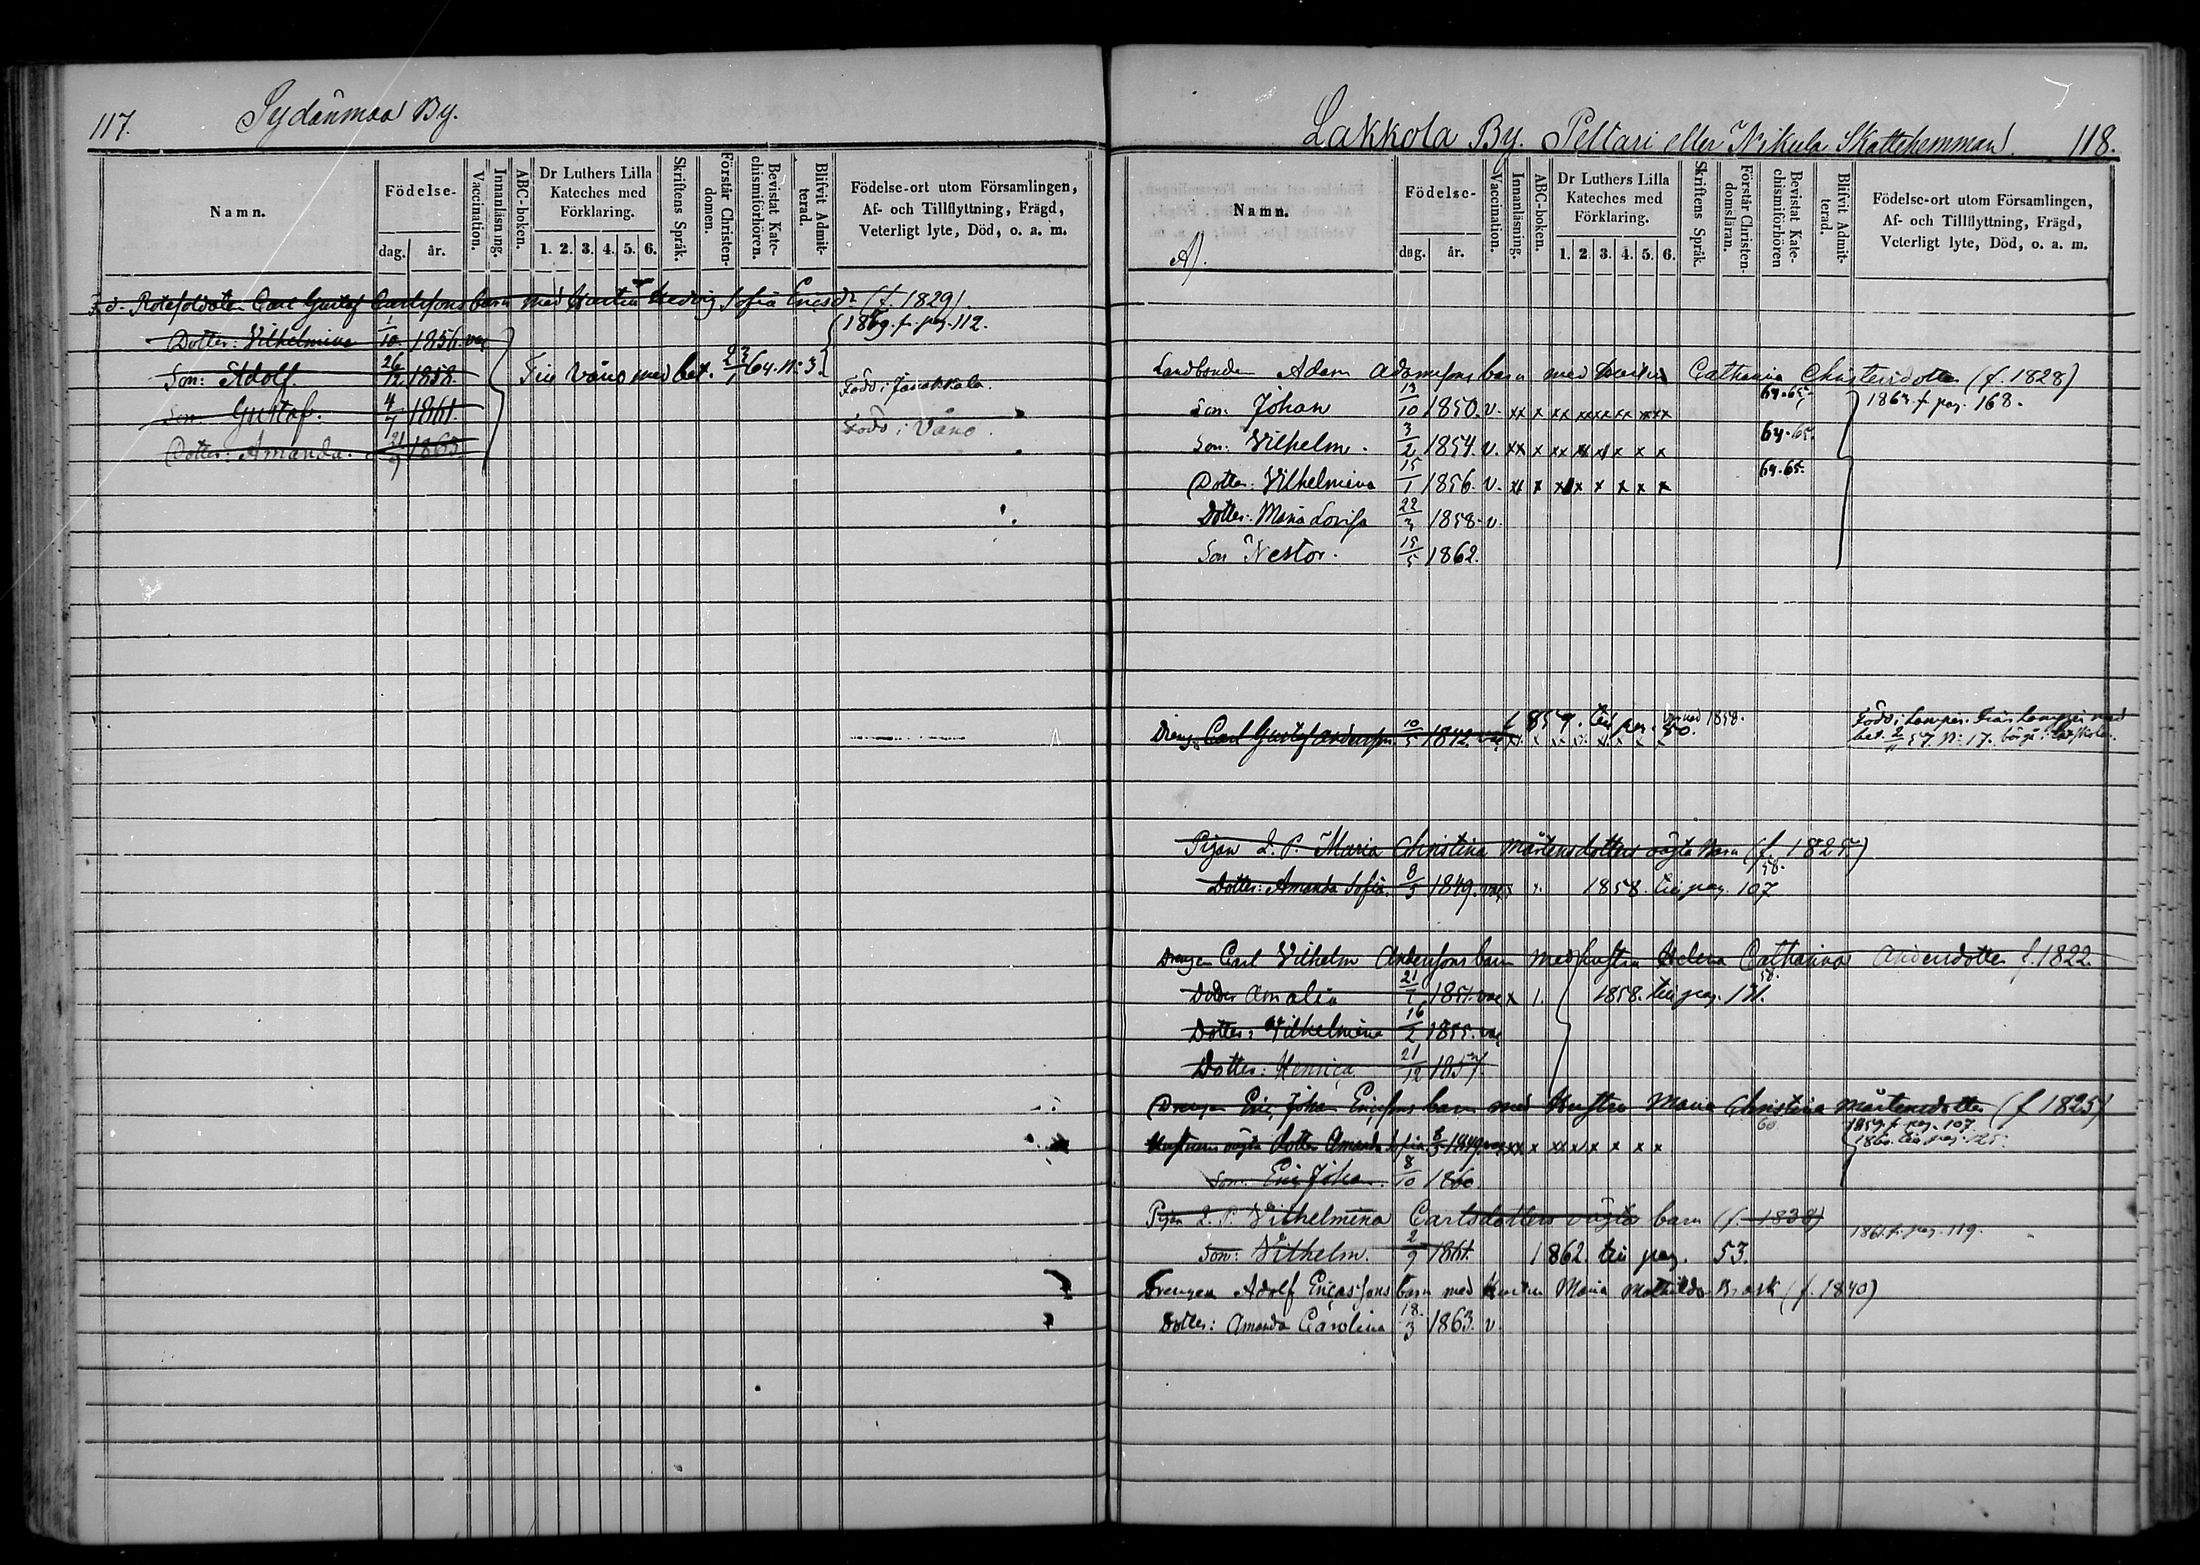 117.
Sydänmaa By.
Namn.
Födelse-
dag. år.
Vaccination.
Innanläsning.
ABC-boken.
Dr Luthers Lilla Kateches med Förklaring.
1. 2. 3. 4. 5. 6.
Skriftens Språk.
Förstår Christen-domen.
Bevistat Kate-chismiförhören.
Blifvit Admit-terad.
Födelse-ort utom Församlingen,
Af- och Tillflyttning, Frägd,
Veterligt lyte, Död, o. a. m.
F. d. Rotesoldaten Carl Gustaf Carlssons barn med Hustru Hedvig Sofia Ericsdr (f. 1829).
Dotter: Vilhelmina 1/10 1856. vac (1859. f. pag. 112.
Son: Adolf. 26/12 1858. Till Vånå med bet. 23/1 64. N: 3.
Född i Janakkala.
Son: Gustaf. 4/7 1861.
Född i Vånå.
Dotter: Amanda. 21/9 1863.
Lakkola By. Peltari eller Nikula Skattehemman. 118.
Namn.
A).
Födelse-
dag. år.
Vaccination.
Innanläsning.
ABC-boken.
Dr Luthers Lilla Kateches med Förklaring.
1. 2. 3. 4. 5. 6.
Skriftens Språk.
Förstår Christen-domsläran.
Bevistat Kate-chismiförhören
Blifvit Admit-terad.
Födelse-ort utom Församlingen,
Af- och Tillflyttning, Frägd,
Veterligt lyte, Död, o. a. m.
Landbonden Adam Adamssons barn med Hustru Catharina Christersdotter (f. 1828)
Son: Johan 13/10 1850. v. xx x xx xx xx xx xx 64.65. pag. 168.
Son: Vilhelm. 3/2 1854. v. xx x xx xx x x x x 64.65.
Dotter: Vilhelmina 15/1 1856. v. xx x xx x x x x x 64.65.
Dotter: Maria Lovisa 22/3 1858. v.
Son Nestor. 15/5 1862.
Dreng: Carl Gustaf Andersson 10/5 1842. vac 1859. till pag. 50. 1858.
Född i Lampis. Från Lampis med
bet. 57. N: 17.
Pigan L. P. Maria Christina Mårtensdotters oägta Barn (f. 1825)
58.
Dotter: Amanda Sofia. 8/5 1849. vac x x. 1858. till pag. 107
Drengen Carl Vilhelm Anderssons barn med hustru Helena Catharina Andersdotter f. 1822.
58.
Dotter Amalia 21/7 1851. vac x 1. 1858. till pag. 131.
Dotter: Vilhelmina 16/2 1855. vac
Dotter: Henrica 21/12 1857
Drengen Eric Johan Ericssons barn med Hustru Maria Christina Mårtensdotter (f. 1825)
60 1859. f. pag. 107.
Hustruns oägta dotter Amanda Sofia 8/5 1849. vac xx x xx x x x x x 1860. till pag. 125.
Son: Eric Johan. 8/10 1860
Pigan L. P. Vilhelmina Carlsdotters oägta barn (f. 1838)
1861. f. pag. 119.
Son: Vilhelm. 2/9 1861. 1862. till pag. 53.
Drengen Adolf Ericassons barn med Hustru Maria Mathilda Brask (f. 1840)
Dotter: Amanda Carolina 18/3 1863. v.